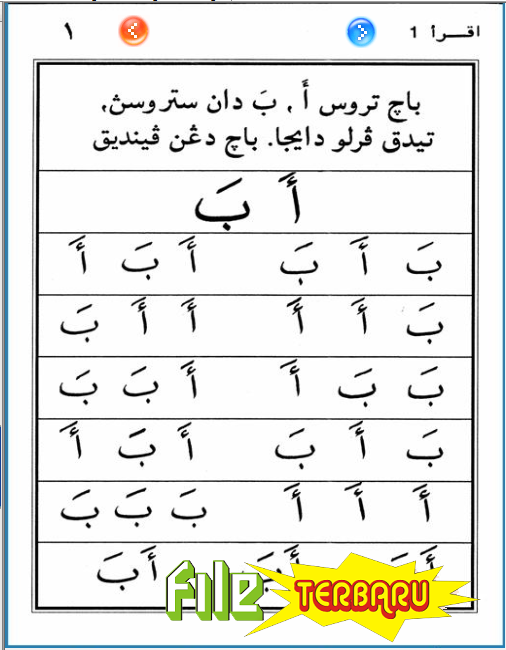 اقـــرأ 1 ١
باچ تروس أَ , بَ دان ستروسڽ,
تيدق ڤرلو دايجا. باچ دڠن ڤينديق
أَ بَ
بَ أَ بَ أَ بَ أَ
بَ أَ أَ أَ أَ بَ
بَ بَ أَ أَ بَ بَ
بَ أَ بَ أَ بَ أَ
أَ أَ أَ بَ بَ بَ
أَبَ أَبَ أَبَ
file TERBARU